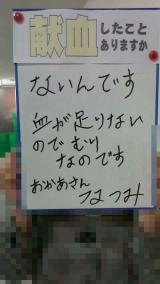 献血したこと
ありますか
ないんです
血が足りない
ので むり
なのです
おかあさん